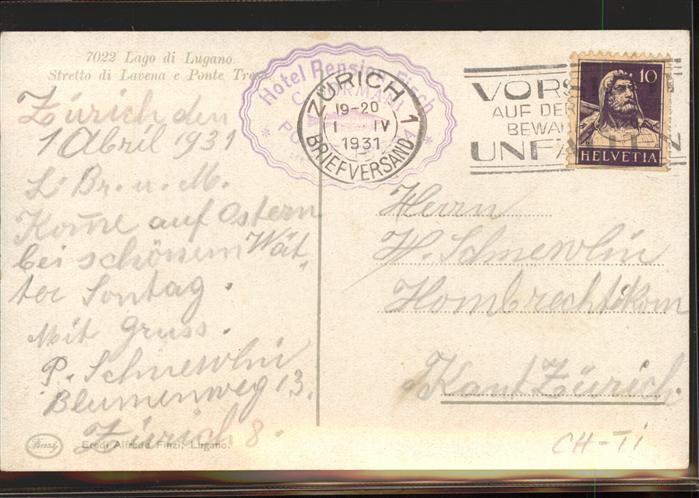 7022 Lago di Lugano
Stretto di Lavena e Ponte Tresa
Zürich den
1 Abril 1931
L. Br. u. M.
Kome auf Ostern
bei schönem Wät-
ter Sontag.
Mit Gruss.
P. Schnewlin
Blumenweg 13.
Zürich 8.
Finzi
Eredi Alfredo Finzi, Lugano.
Hotel Pension Fisch
ZÜRICH 1
19-20
1 IV
1931
BRIEFVERSAND
VORS
AUF DER
BEWA
UNFA EN
10
HELVETIA
Herrn
H. Schnewlin
Hombrechtikon
Kant Zürich.
CH-Ti